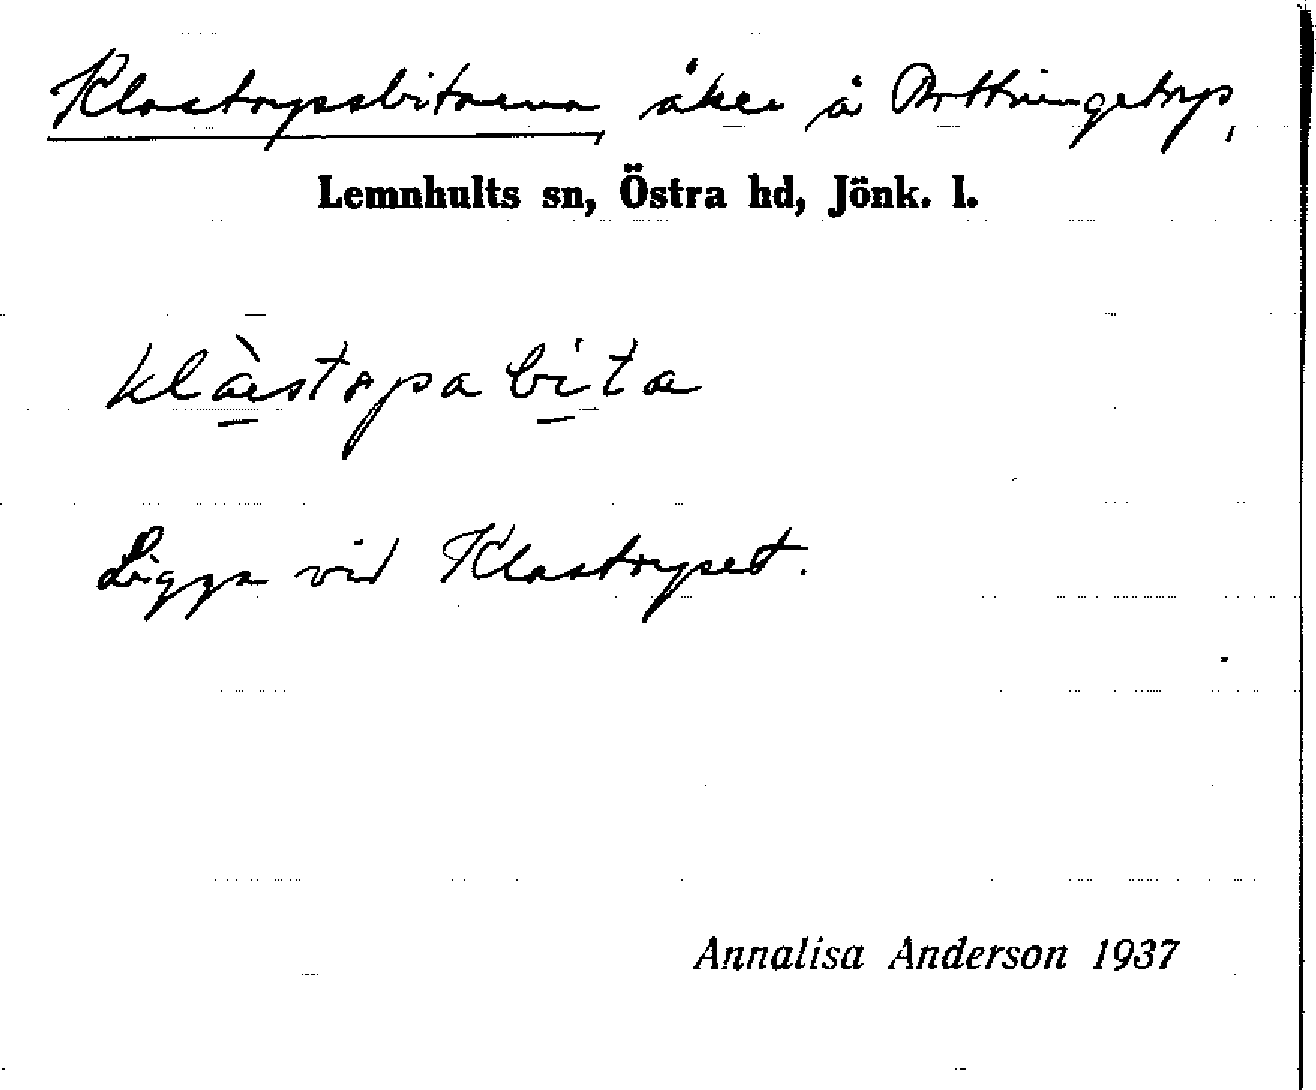 Klastorpsbitarna åker å Bottningetorp,
Lemnhults sn, Östra hd, Jönk. l.
klàestɔpa bíta
Ligga vid Klastorpet.
Annalisa Anderson 1937